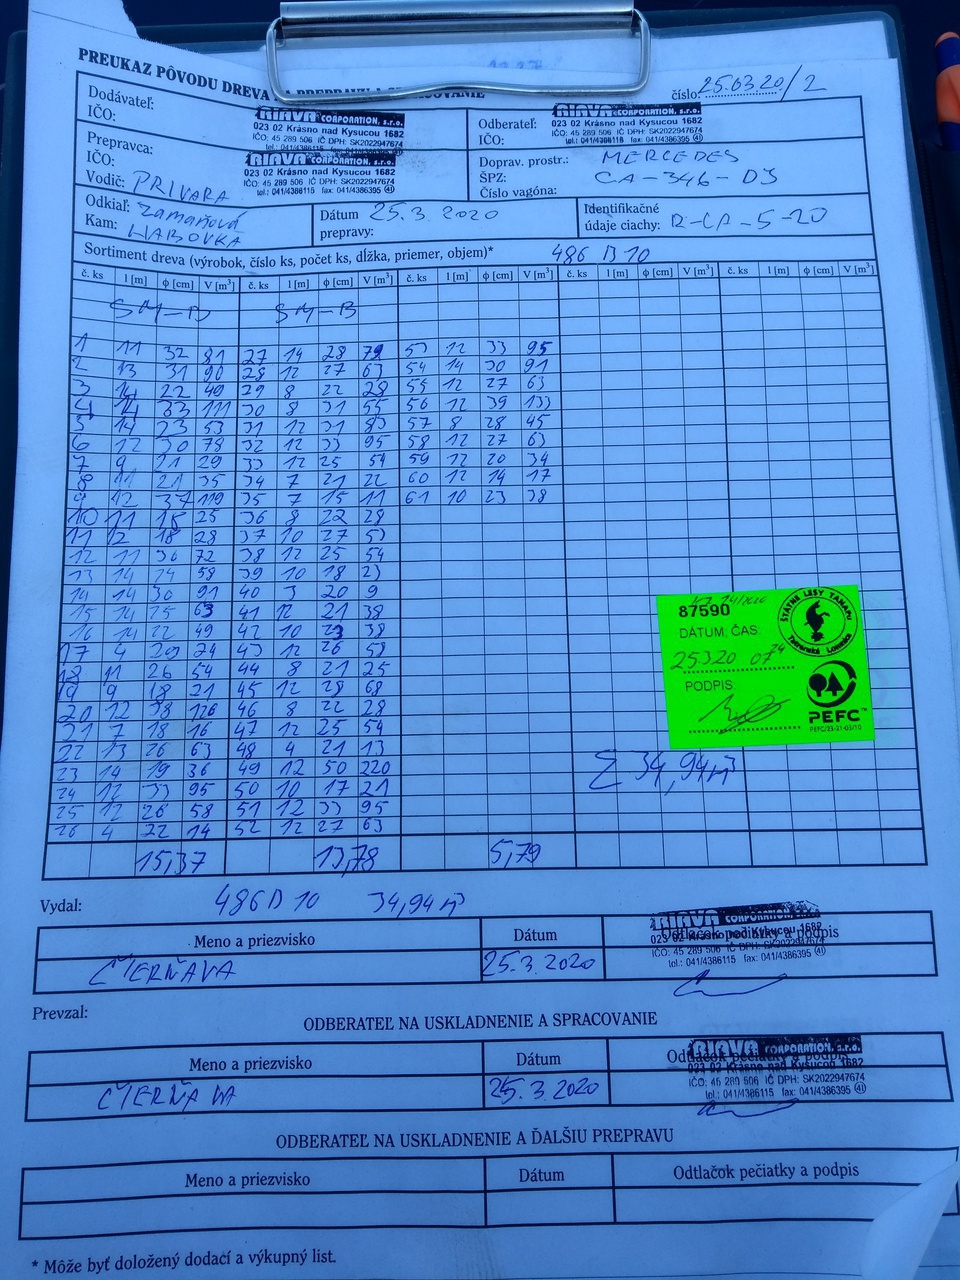 PREUKAZ PÔVODU DREVA NA PREPRAVU A SPRACOVANIE
číslo: 25.03.20/2
Dodávateľ:
IČO:
RIAVA CORPORATION, s.r.o.
023 02 Krásno nad Kysucou 1682
IČO: 45 289 506 IČ DPH: SK2022947674
tel.: 041/4386115 fax: 041/4386395
Odberateľ:
IČO:
RIAVA CORPORATION, s.r.o.
023 02 Krásno nad Kysucou 1682
IČO: 45 289 506 IČ DPH: SK2022947674
tel.: 041/4386115 fax: 041/4386395
Prepravca:
IČO:
Vodič: PRIVARA
RIAVA CORPORATION, s.r.o.
023 02 Krásno nad Kysucou 1682
IČO: 45 289 506 IČ DPH: SK2022947674
tel.: 041/4386115 fax: 041/4386395 41
Doprav. prostr.: MERCEDES
ŠPZ: CA-346-DJ
Číslo vagóna:
Odkiaľ:
Kam: HABOVKA
Dátum prepravy: 25.3.2020
Identifikačné údaje ciachy: R-CA-5-20
Sortiment dreva (výrobok, číslo ks, počet ks, dĺžka, priemer, objem)* 486 D 10
č. ks l [m] ϕ [cm] V [m³] č. ks l [m] ϕ [cm] V [m³] č. ks l [m] ϕ [cm] V [m³] č. ks l [m] ϕ [cm] V [m³] č. ks l [m] ϕ [cm] V [m³]
SM-B SM-B
1 11 32 81 27 14 28 79 53 12 33 95
2 13 31 90 28 12 27 63 54 14 30 91
3 14 22 49 29 8 22 28 55 12 27 63
4 14 33 111 30 8 31 55 56 12 39 133
5 14 23 53 31 12 31 83 57 8 28 45
6 12 30 78 32 12 33 95 58 12 27 63
7 9 21 29 33 12 25 54 59 12 20 34
8 11 21 35 34 7 21 22 60 12 14 17
9 12 37 119 35 7 15 11 61 10 23 38
10 11 18 25 36 8 22 28
11 12 18 28 37 10 27 53
12 11 30 72 38 12 25 54
13 14 24 58 39 10 18 23
14 14 30 91 40 3 20 9
15 14 25 63 41 12 21 38
16 14 22 49 42 10 23 38
17 4 29 24 43 12 26 58
18 11 26 54 44 8 21 25
19 9 18 21 45 12 28 68
20 12 38 126 46 8 22 28
21 7 18 16 47 12 25 54
22 13 26 63 48 4 21 13
23 14 19 36 49 12 50 220
24 12 33 95 50 10 17 21
25 12 26 58 51 12 33 95
26 4 22 14 52 12 27 63
15,37 13,78 5,79
87590
DÁTUM, ČAS:
25.3.20 07 24
PODPIS
ŠTÁTNE LESY TANAPu
Tatranská Lomnica
PEFC™
PEFC/23-21-03/10
Σ 34,94 m³
Vydal: 486 D 10 34,94 m³
Meno a priezvisko Dátum Odtlačok pečiatky a podpis
RIAVA CORPORATION, s.r.o.
023 02 Krásno nad Kysucou 1682
IČO: 45 289 506 IČ DPH: SK2022947674
tel.: 041/4386115 fax: 041/4386395 41
ČIERŇAVA 25.3.2020
Prevzal:
ODBERATEĽ NA USKLADNENIE A SPRACOVANIE
Meno a priezvisko Dátum Odtlačok pečiatky a podpis
RIAVA CORPORATION, s.r.o.
023 02 Krásno nad Kysucou 1682
IČO: 45 289 506 IČ DPH: SK2022947674
tel.: 041/4386115 fax: 041/4386395 41
ČIERŇAVA 25.3.2020
ODBERATEĽ NA USKLADNENIE A ĎALŠIU PREPRAVU
Meno a priezvisko Dátum Odtlačok pečiatky a podpis
* Môže byť doložený dodací a výkupný list.